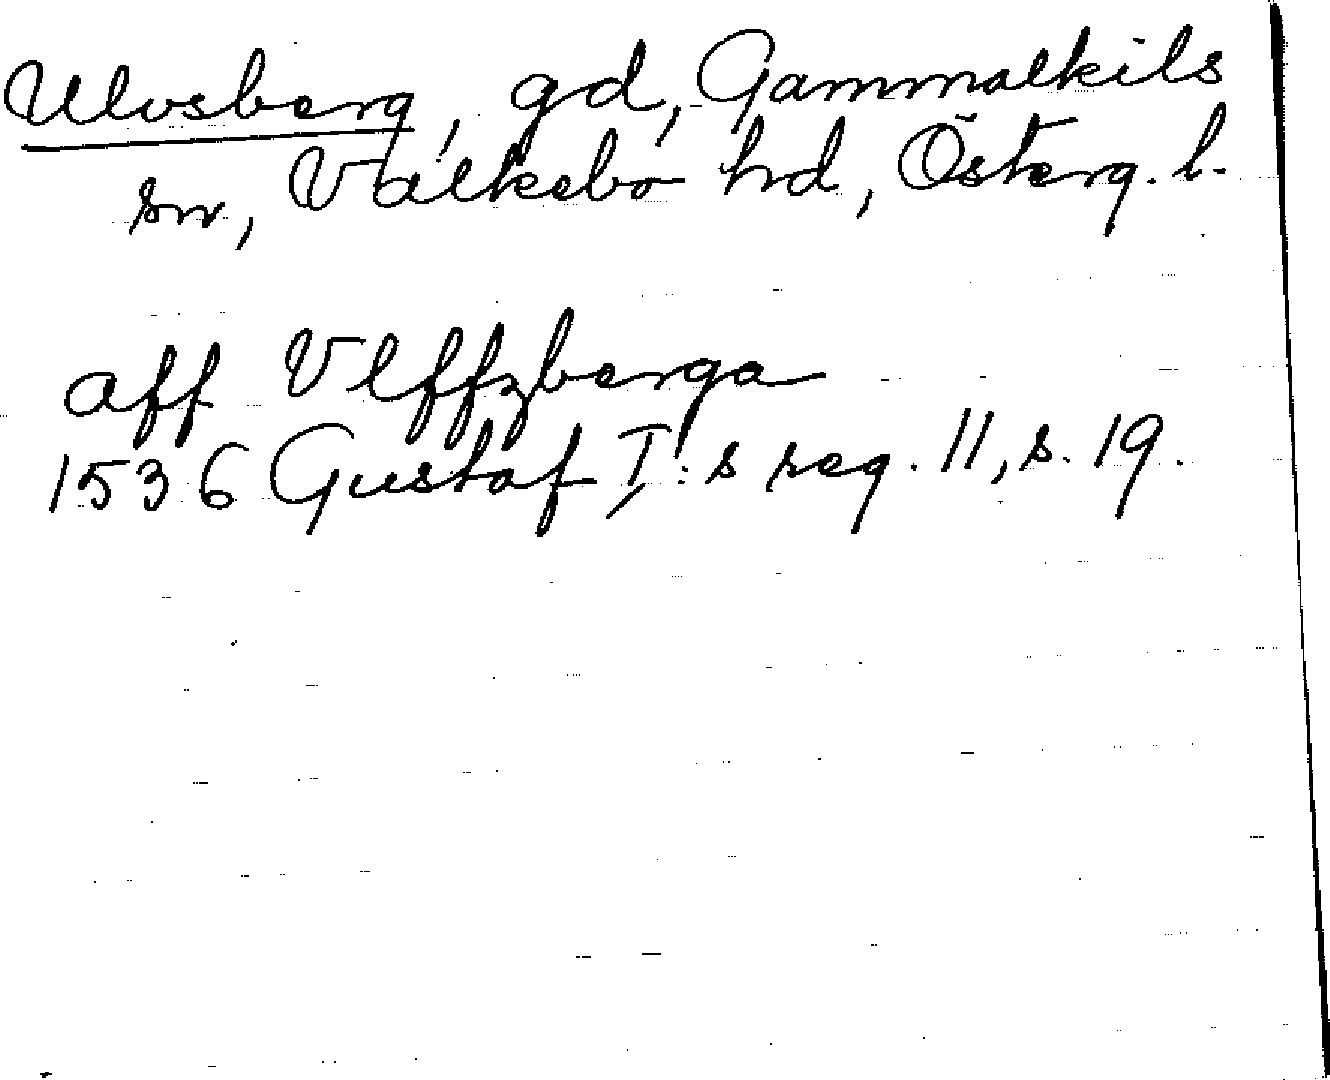 Ulvsberg, gd, Gammalkils
sn, Valkebo hd, Österg. l.
aff Vlffzberga
1536 Gustaf I:s reg. 11, s. 19.